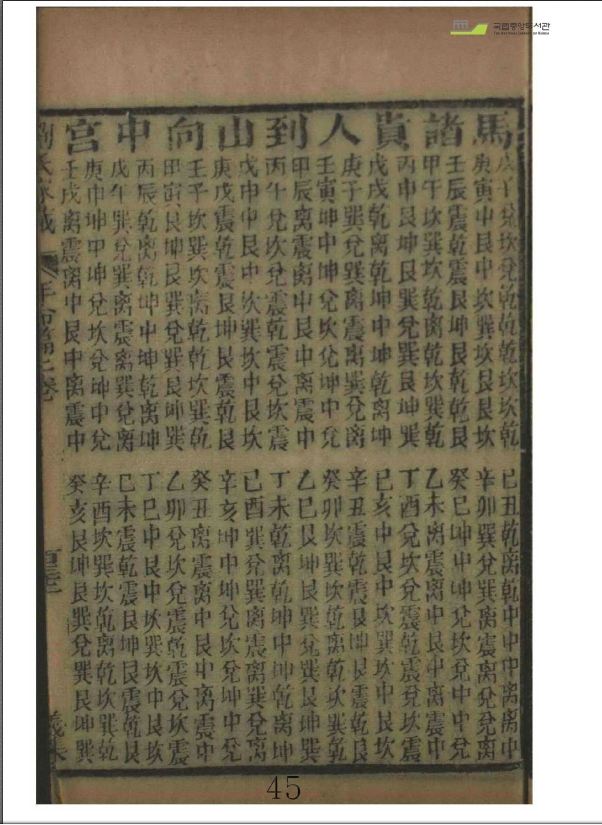 國立中央도서관
THE NATIONAL LIBRARY OF KOREA
馬諸貴人到山向中宮
戊子兌坎兌乾乾乾坎坎乾
己丑乾离乾中中中离离中
庚寅中艮中坎巽坎艮艮坎
辛卯巽兌巽离震离兌兌离
壬辰震乾震艮坤艮乾乾艮
癸巳坤中坤兌坎兌中中兌
甲午坎巽坎乾离乾坎巽乾
乙未离震离中艮中离震中
丙申艮坤艮巽兌巽艮坤巽
丁酉兌坎兌震乾震兌坎震
戊戌乾离乾坤中坤乾离坤
己亥中艮中坎巽坎中艮坎
庚子巽兌巽离震离巽兌离
辛丑震乾震艮坤艮震乾艮
壬寅坤中坤兌坎兌坤中兌
癸卯坎巽坎乾离乾坎巽乾
甲辰离震离中艮中离震中
乙巳艮坤艮巽兌巽艮坤巽
丙午兌坎兌震乾震兌坎震
丁未乾离乾坤中坤乾离坤
戊申中艮中坎巽坎中艮坎
己酉巽兌巽离震离巽兌离
庚戌震乾震艮坤艮震乾艮
辛亥坤中坤兌坎兌坤中兌
壬子坎巽坎乾离乾坎巽乾
癸丑离震离中艮中离震中
甲寅艮坤艮巽兌巽艮坤巽
乙卯兌坎兌震乾震兌坎震
丙辰乾离乾坤中坤乾离坤
丁巳中艮中坎巽坎中艮坎
戊午巽兌巽离震离巽兌离
己未震乾震艮坤艮震乾艮
庚申坤中坤兌坎兌坤中兌
辛酉坎巽坎乾离乾坎巽乾
壬戌离震离中艮中离震中
癸亥艮坤艮巽兌巽艮坤巽
45